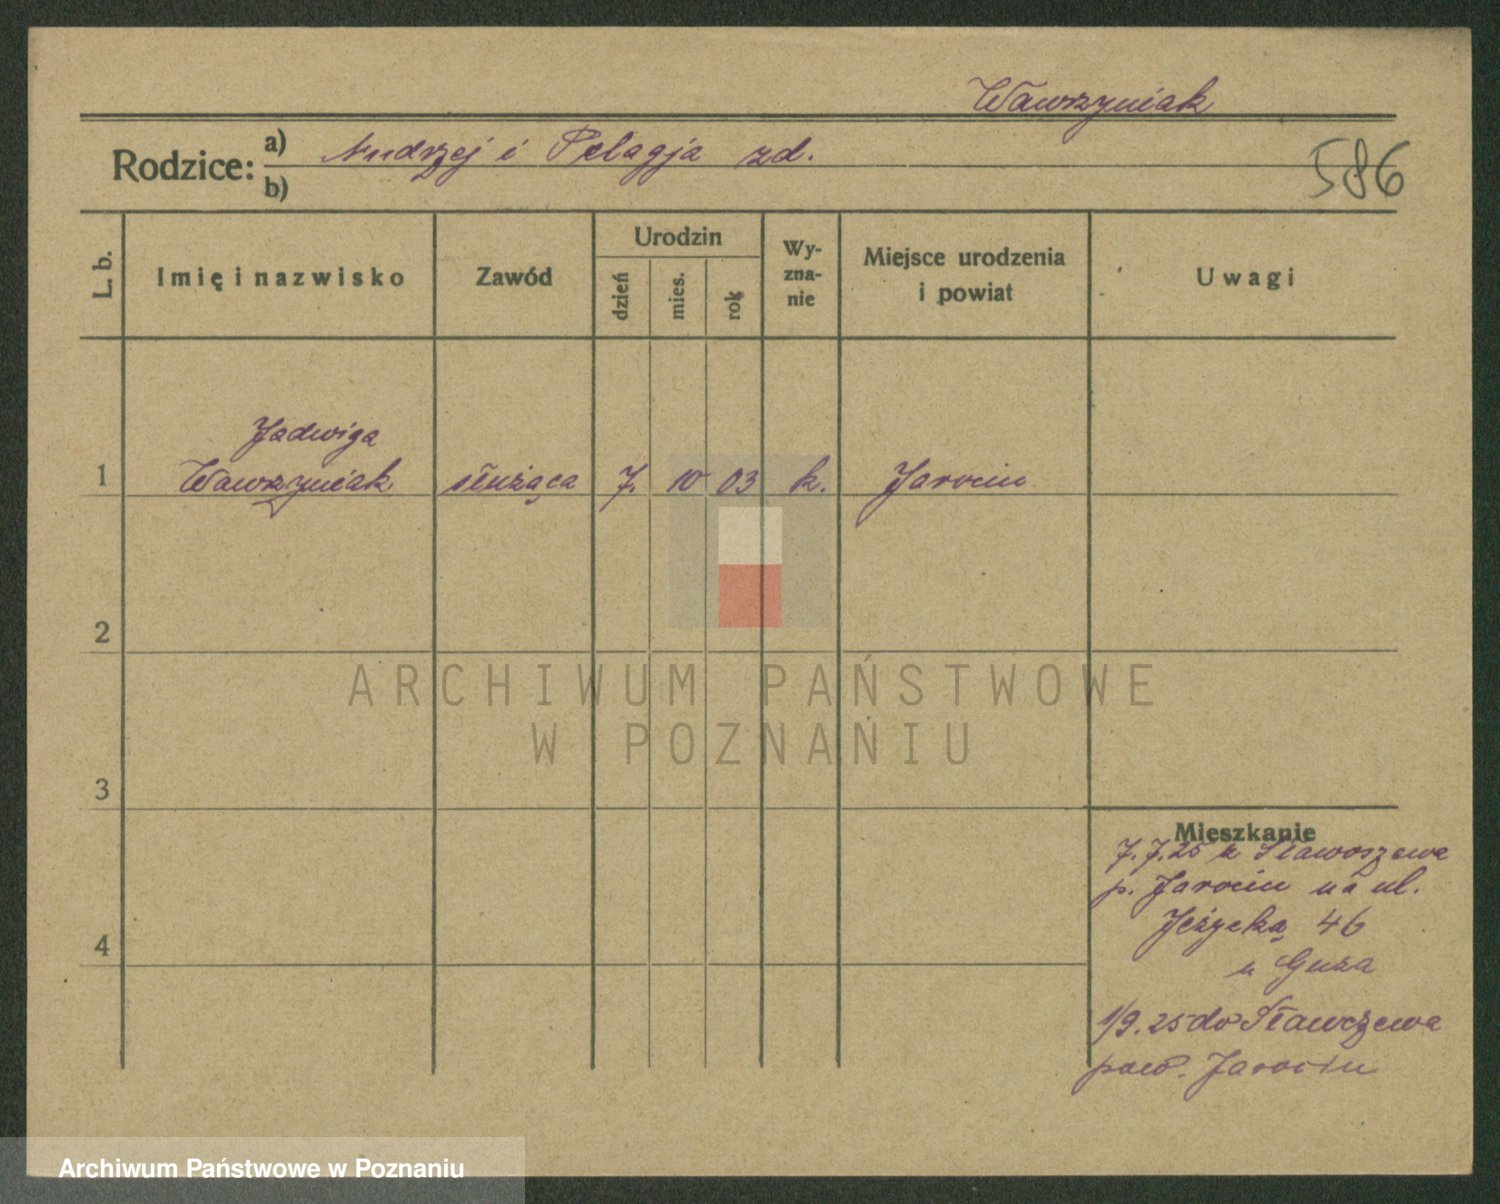 Wawrzyniak
Rodzice: a) Andrzej i Pelagja zd.
b)
586
L. b.
Imię i nazwisko
Zawód
Urodzin
dzień
mies.
rok
Wy-
zna-
nie
Miejsce urodzenia
i powiat
Uwagi
Jadwiga
1 Wawrzyniak służąca 7. 10 03 k. Jarocin
2
3
4
Mieszkanie
7.7.25 z Sławoszewa
p. Jarocin na ul.
Jeżycką 46
u Guza
1/9.25 do Sławszewa
pow. Jarocin
ARCHIWUM PAŃSTWOWE
W POZNANIU
Archiwum Państwowe w Poznaniu